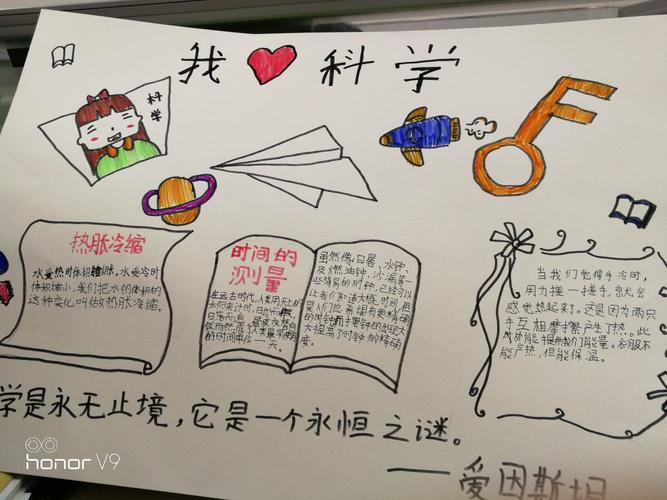 我 科学
科学
热胀冷缩
水受热时体积膨胀,水受冷时
体积缩小,我们把水的体积的
这种变化叫做热胀冷缩。
时间的
测量
在远古时代,人类用天上的
太阳来计时,日出而
日落而息,
的时间单位 一天。
虽然像日晷、水钟、
及燃油钟、沙漏等一
些特易的时钟,已经可以
让我们知道大概时间,但
是人们总希望有更精确
的时钟,而摆钟的出现大
大提高了时钟的精确
度。
当我们觉得手冷时,
用力搓一搓手,就会
感觉热起来了。这是因为两只
手互相摩擦产生了热。此
能提供我们能量。衣服不
能产热,但能保温。
学是永无止境,它是一个永恒之谜。
——爱因斯坦
honor V9